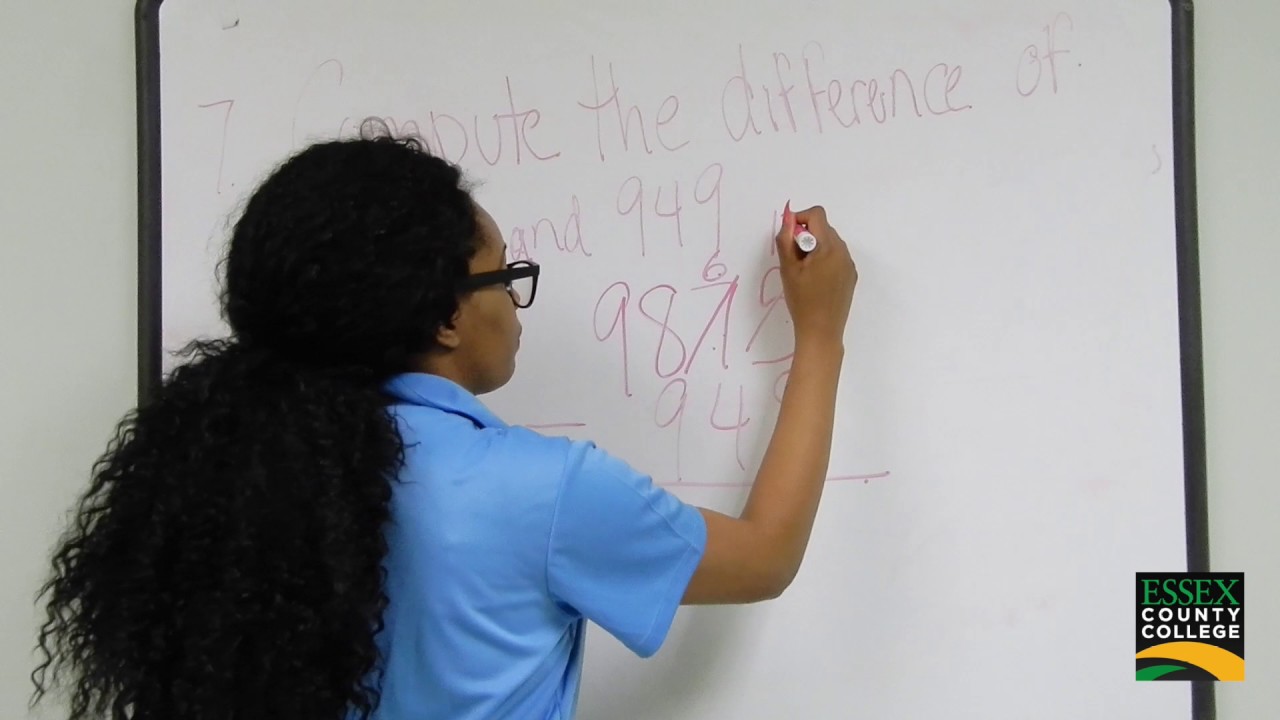 7. Compute the difference of
and 949
6
987
94
ESSEX
COUNTY
COLLEGE